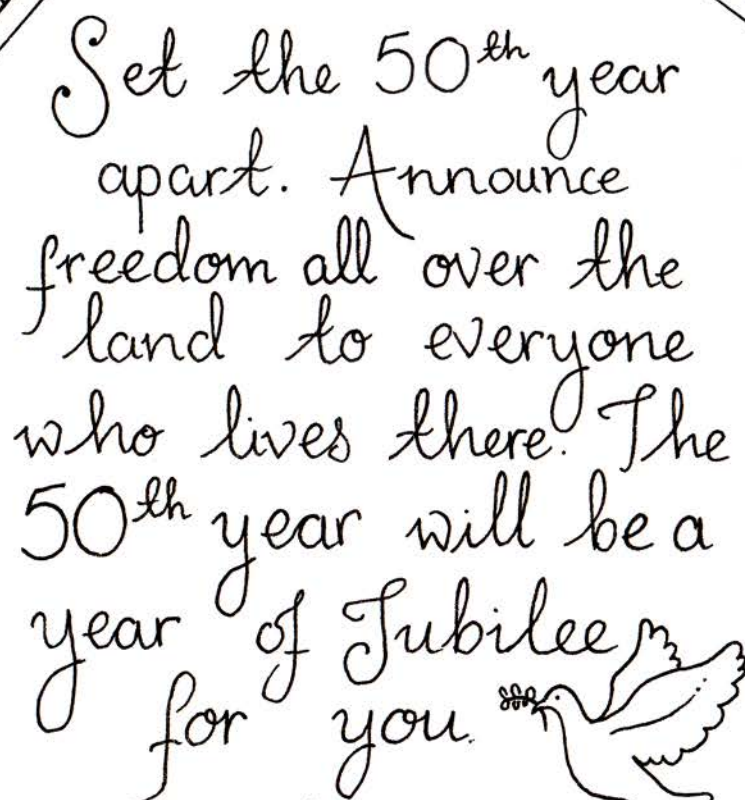 Set the 50th year
apart. Announce
freedom all over the
land to everyone
who lives there. The
50th year will be a
year of Jubilee
for you.